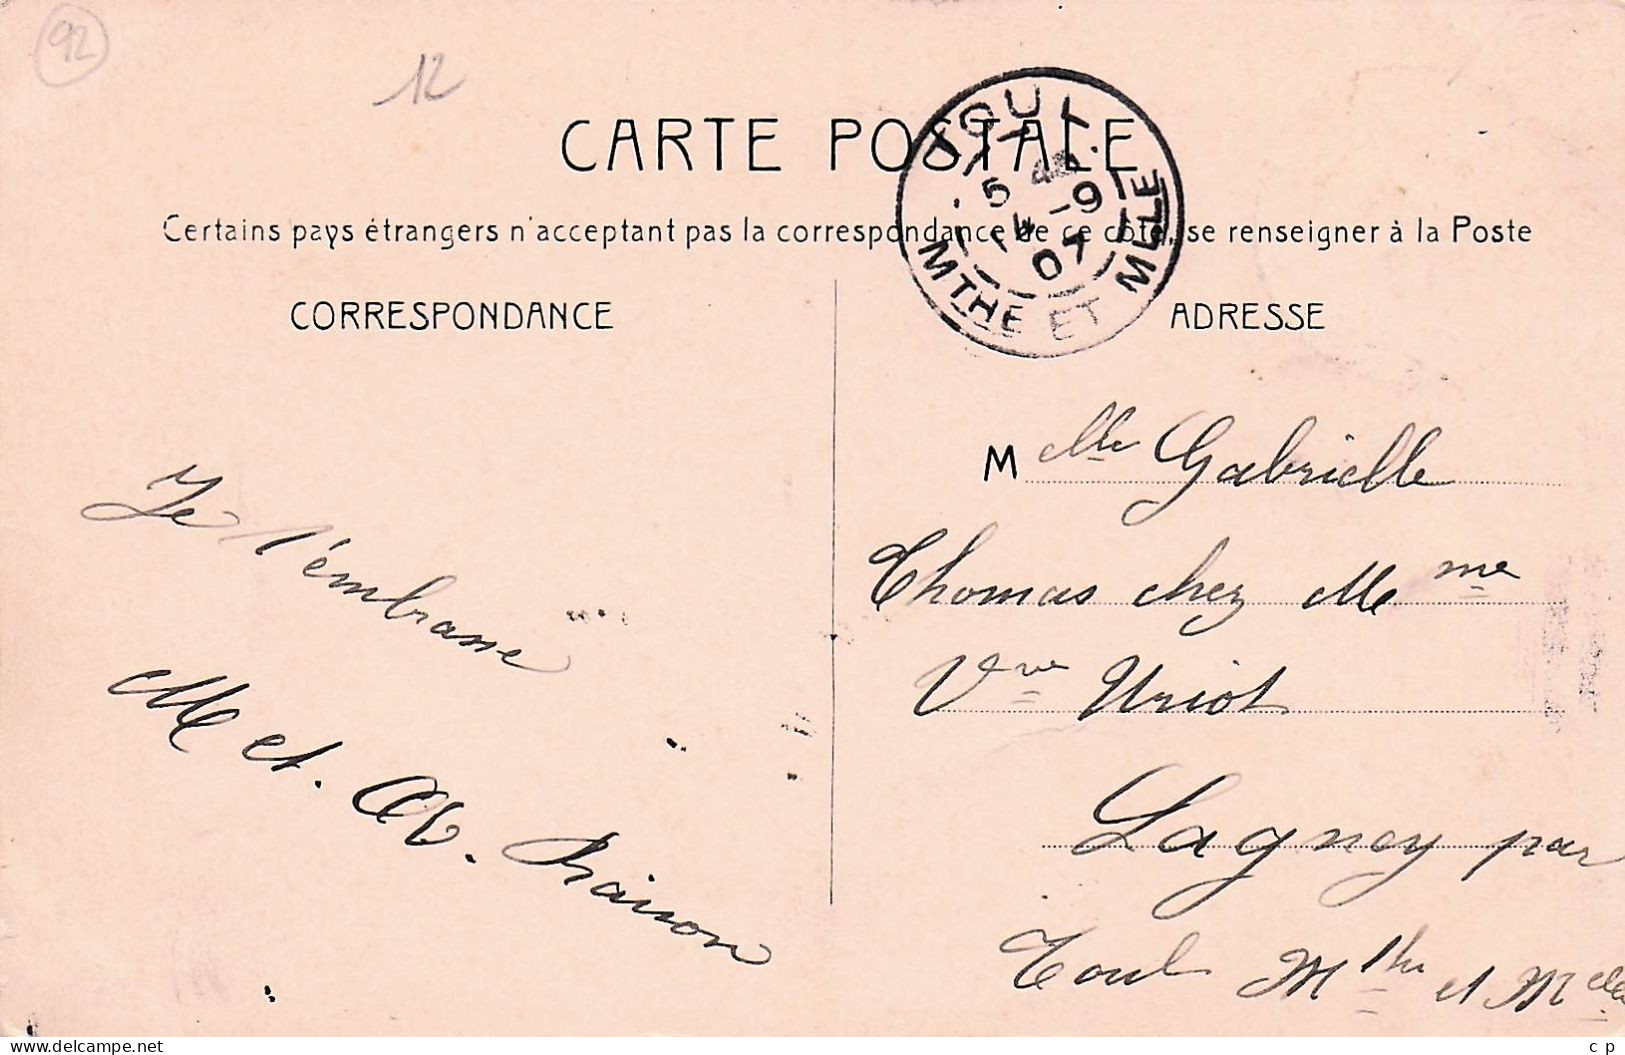 92
12
CARTE POSTALE
TOUL
5
4-9
07
MTHE ET MLLE
Certains pays étrangers n'acceptant pas la correspondance de ce côté, se renseigner à la Poste
CORRESPONDANCE
ADRESSE
Melle Gabrielle
Thomas chez Mme
Vve Uriot
Lagney par
Toul Mthe et Mlle
Je t'embrasse
M et
www.delcampe.net
c p